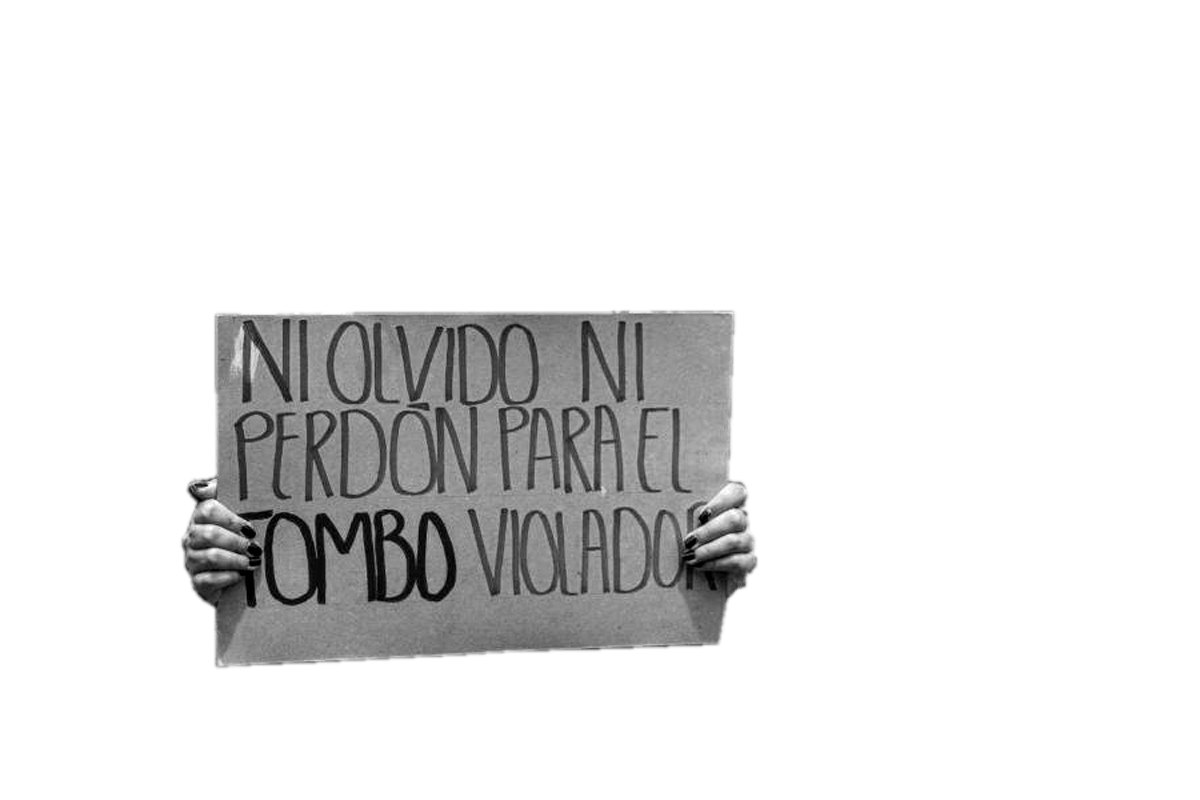 NI OLVIDO NI
PERDÓN PARA EL
TOMBO VIOLADOR